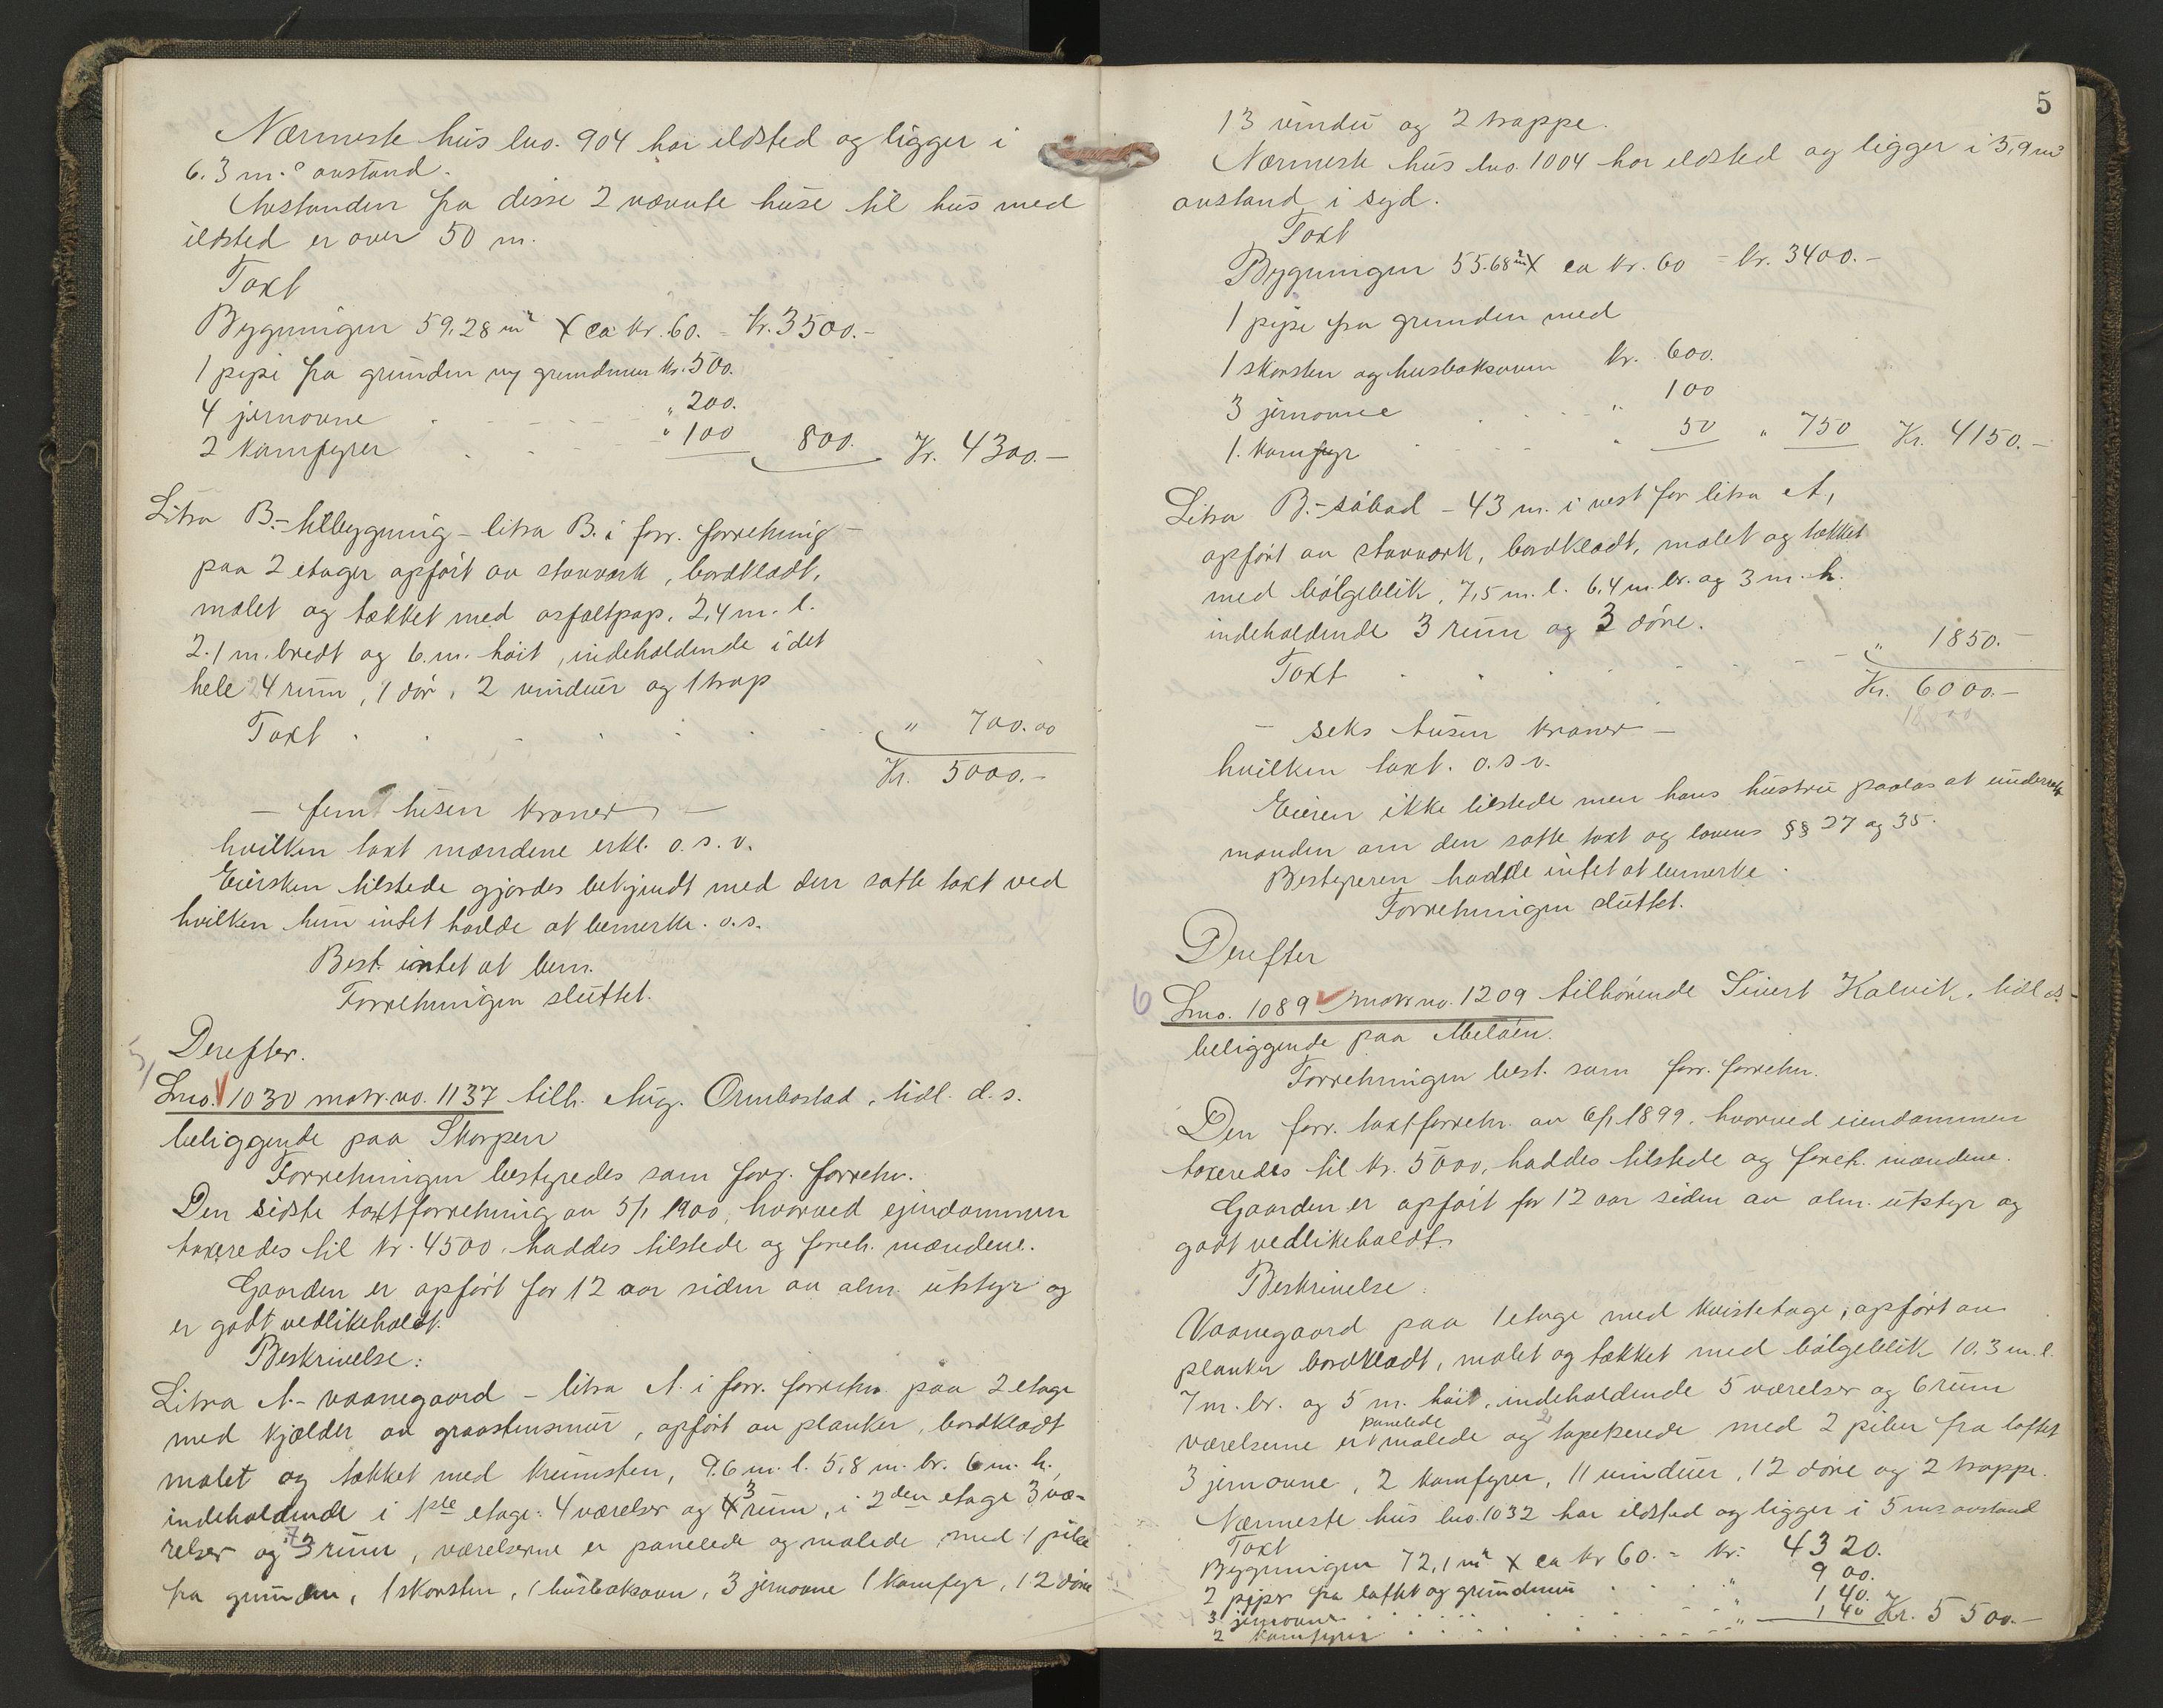 Nærmeste hus lno. 904 har ildsted og ligger i
6.3 m.s avstand.
Avstanden fra disse 2 nævnte huse til hus med
ildsted er over 50 m.
Taxt
Bygningen 59,28 m² X ca kr. 60. = kr. 3500.-
1 pipe fra grunden og grundmur kr. 500.
4 jernovne " 200.
2 kamfyrer " 100 800. Kr. 4300.-
Litra B.- tilbygning - litra B. i forr. forretning -
paa 2 etager opført av stavverk, bordklædt,
malet og tækket med asfaltpap, 2,4 m. l.
2.1 m. bredt og 6. m. høit, indeholdende i det
hele 4 rum, 1 dør, 2 vinduer og 1 trap
Taxt " 700.00
Kr. 5000.-
- fem tusen kroner -
hvilken taxt mændene erkl. o. s. v.
Eiersken tilstede gjordes bekjendt med den satte taxt ved
hvilken hun intet hadde at bemerke. o.s.
Best. intet at bem.
Forretningen sluttet.
5/
Derefter.
Lno. 1030 matr. no. 1137 tilh. Aug. Ormbostad, tidl. d. s.
beliggende paa Skorpen
Forretningen bestyredes som forr. forretn.
Den sidste taxtforretning av 5/1 1900, hvorved ejendommen
taxeredes til kr. 4500, haddes tilstede og foreh. mændene.
Gaarden er opført for 12 aar siden av alm. utstyr og
er godt vedlikeholdt.
Beskrivelse:
Litra A.- vaanegaard - litra A. i forr. forretn. paa 2 etage
med kjælder av graastensmur, opført av planker, bordklædt
malet og tækket med krumsten, 9.6 m. l. 5,8 m. br. 6 m. h.,
indeholdende i 1ste etage: 4 værelser og 3 rum, i 2den etage 3 væ-
relser og 3 rum, værelserne er panelede og malede med 1 pibe
fra grunden, 1 skorsten, 1 husbaksovn, 3 jernovne 1 kamfyr, 12 døre
5
13 vindu og 2 trappe.
Nærmeste hus lno. 1004 har ildsted og ligger i 5,9 ms
avstand i syd.
Taxt
Bygningen 55.68 m² X ca kr. 60 = kr. 3400.-
1 pipe fra grunden med
1 skorsten og husbaksovn kr. 600.
3 jernovne " 100
1. kamfyr " 50 " 750 Kr. 4150.-
Litra B.- sjøbod - 43 m. i vest for litra A,
opført av stavverk, bordklædt, malet og tækket
med bølgeblik, 7,5 m. l. 6,4 m. br. og 3 m. h.
indeholdende 3 rum og 3 døre.
Taxt " 1850.-
Kr. 6000.-
- seks tusen kroner -
hvilken taxt. o. s. v.
Eieren ikke tilstede men hans hustru paalas at underrette
manden om den satte taxt og lovens §§ 27 og 35.
Bestyreren hadde intet at bemerke.
Forretningen sluttet.
Derefter
6
Lno. 1089 matr no. 1209 tilhørende Sivert Kalvik, tidl. d. s.-
beliggende paa Meløen.
Forretningen best. som forr. forretn.
Den forr. taxtforretn. av 6/1 1899, hvorved eiendommen
taxeredes til kr. 5000, haddes tilstede og foreh. mændene.
Gaarden er opført for 12 aar siden av alm. utstyr og
godt vedlikeholdt.
Beskrivelse:
Vaanegaard paa 1 etage med kvistetage, opført av
planker bordklædt, malet og tækket med bølgeblik 10.3 m. l.
7 m. br. og 5 m. høit, indeholdende 5 værelser og 6 rum
værelserne er panelede malede og 2 tapetserede med 2 piber fra loftet
3 jernovne, 2 kamfyrer, 11 vinduer, 12 døre og 2 trappe.
Nærmeste hus lno. 1032 har ildsted og ligger i 5 ms avstand
Taxt
Bygningen 72,1 m² X ca kr 60. = kr. 4320.
2 piper fra loftet og grundmur " 900.
3 jernovne " 140.
2 kamfyrer " 140 Kr. 5500.-